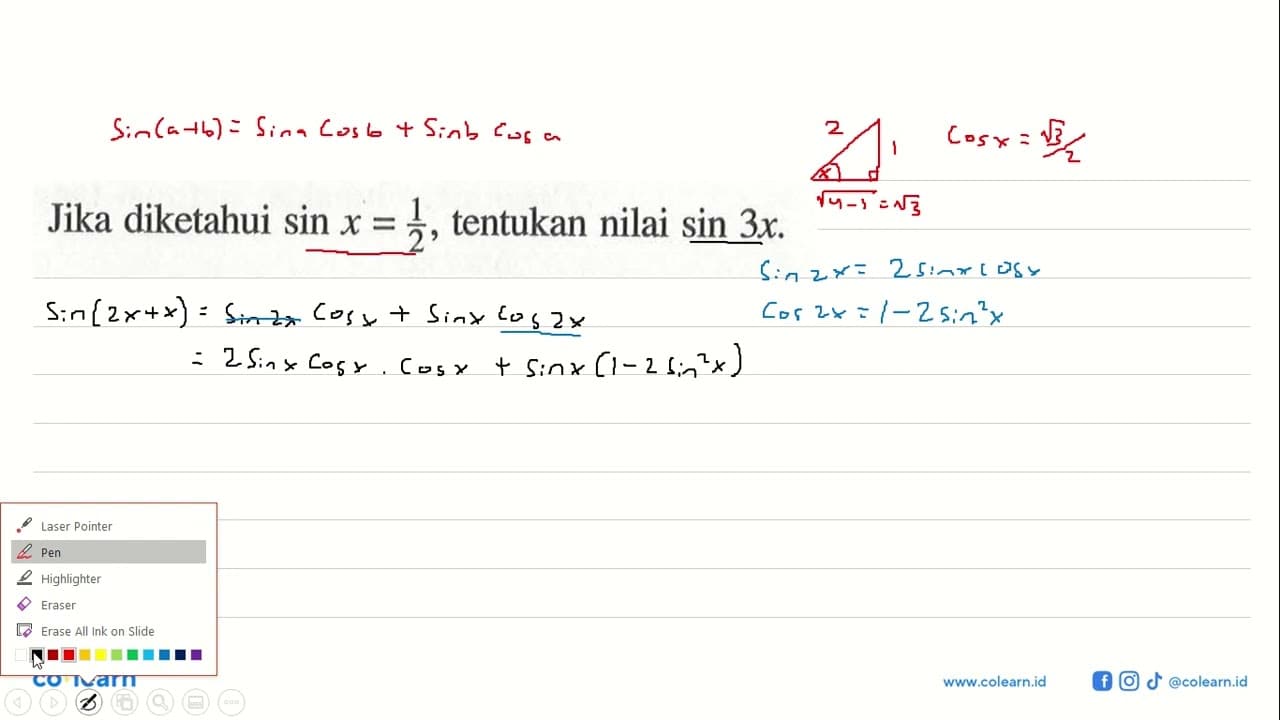 Sin(a+b) = Sina Cosb + Sinb Cos a
2
1
x
√4-1 = √3
Cos x = √3/2
Jika diketahui sin x = 1/2, tentukan nilai sin 3x.
Sin 2x = 2 sinx cosx
Cos 2x = 1 - 2 sin²x
Sin(2x+x) = Sin 2x Cosx + Sinx Cos 2x
= 2 Sinx Cosx . Cosx + Sinx (1 - 2 Sin²x)
Laser Pointer
Pen
Highlighter
Eraser
Erase All Ink on Slide
co learn
www.colearn.id
@colearn.id